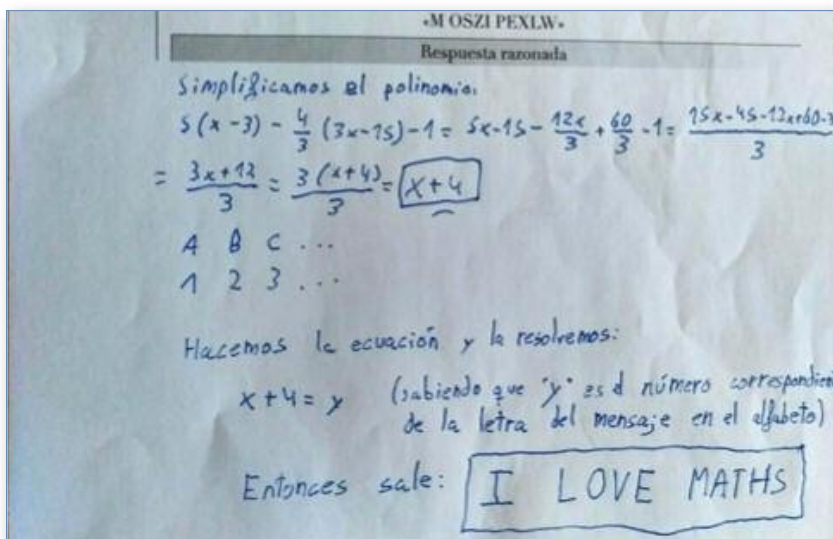 «M OSZI PEXLW»
Respuesta razonada
Simplificamos el polinomio.
5(x-3) - 4/3 (3x-15) -1 = 5x-15 - 12x/3 + 60/3 -1 = 15x-45-12x+60-3/3
= 3x+12/3 = 3(x+4)/3 = x+4
A B C ...
1 2 3 ...
Hacemos la ecuación y la resolvemos:
x+4 = y (sabiendo que "y" es el número correspondien
de la letra del mensaje en el alfabeto)
Entonces sale: I LOVE MATHS